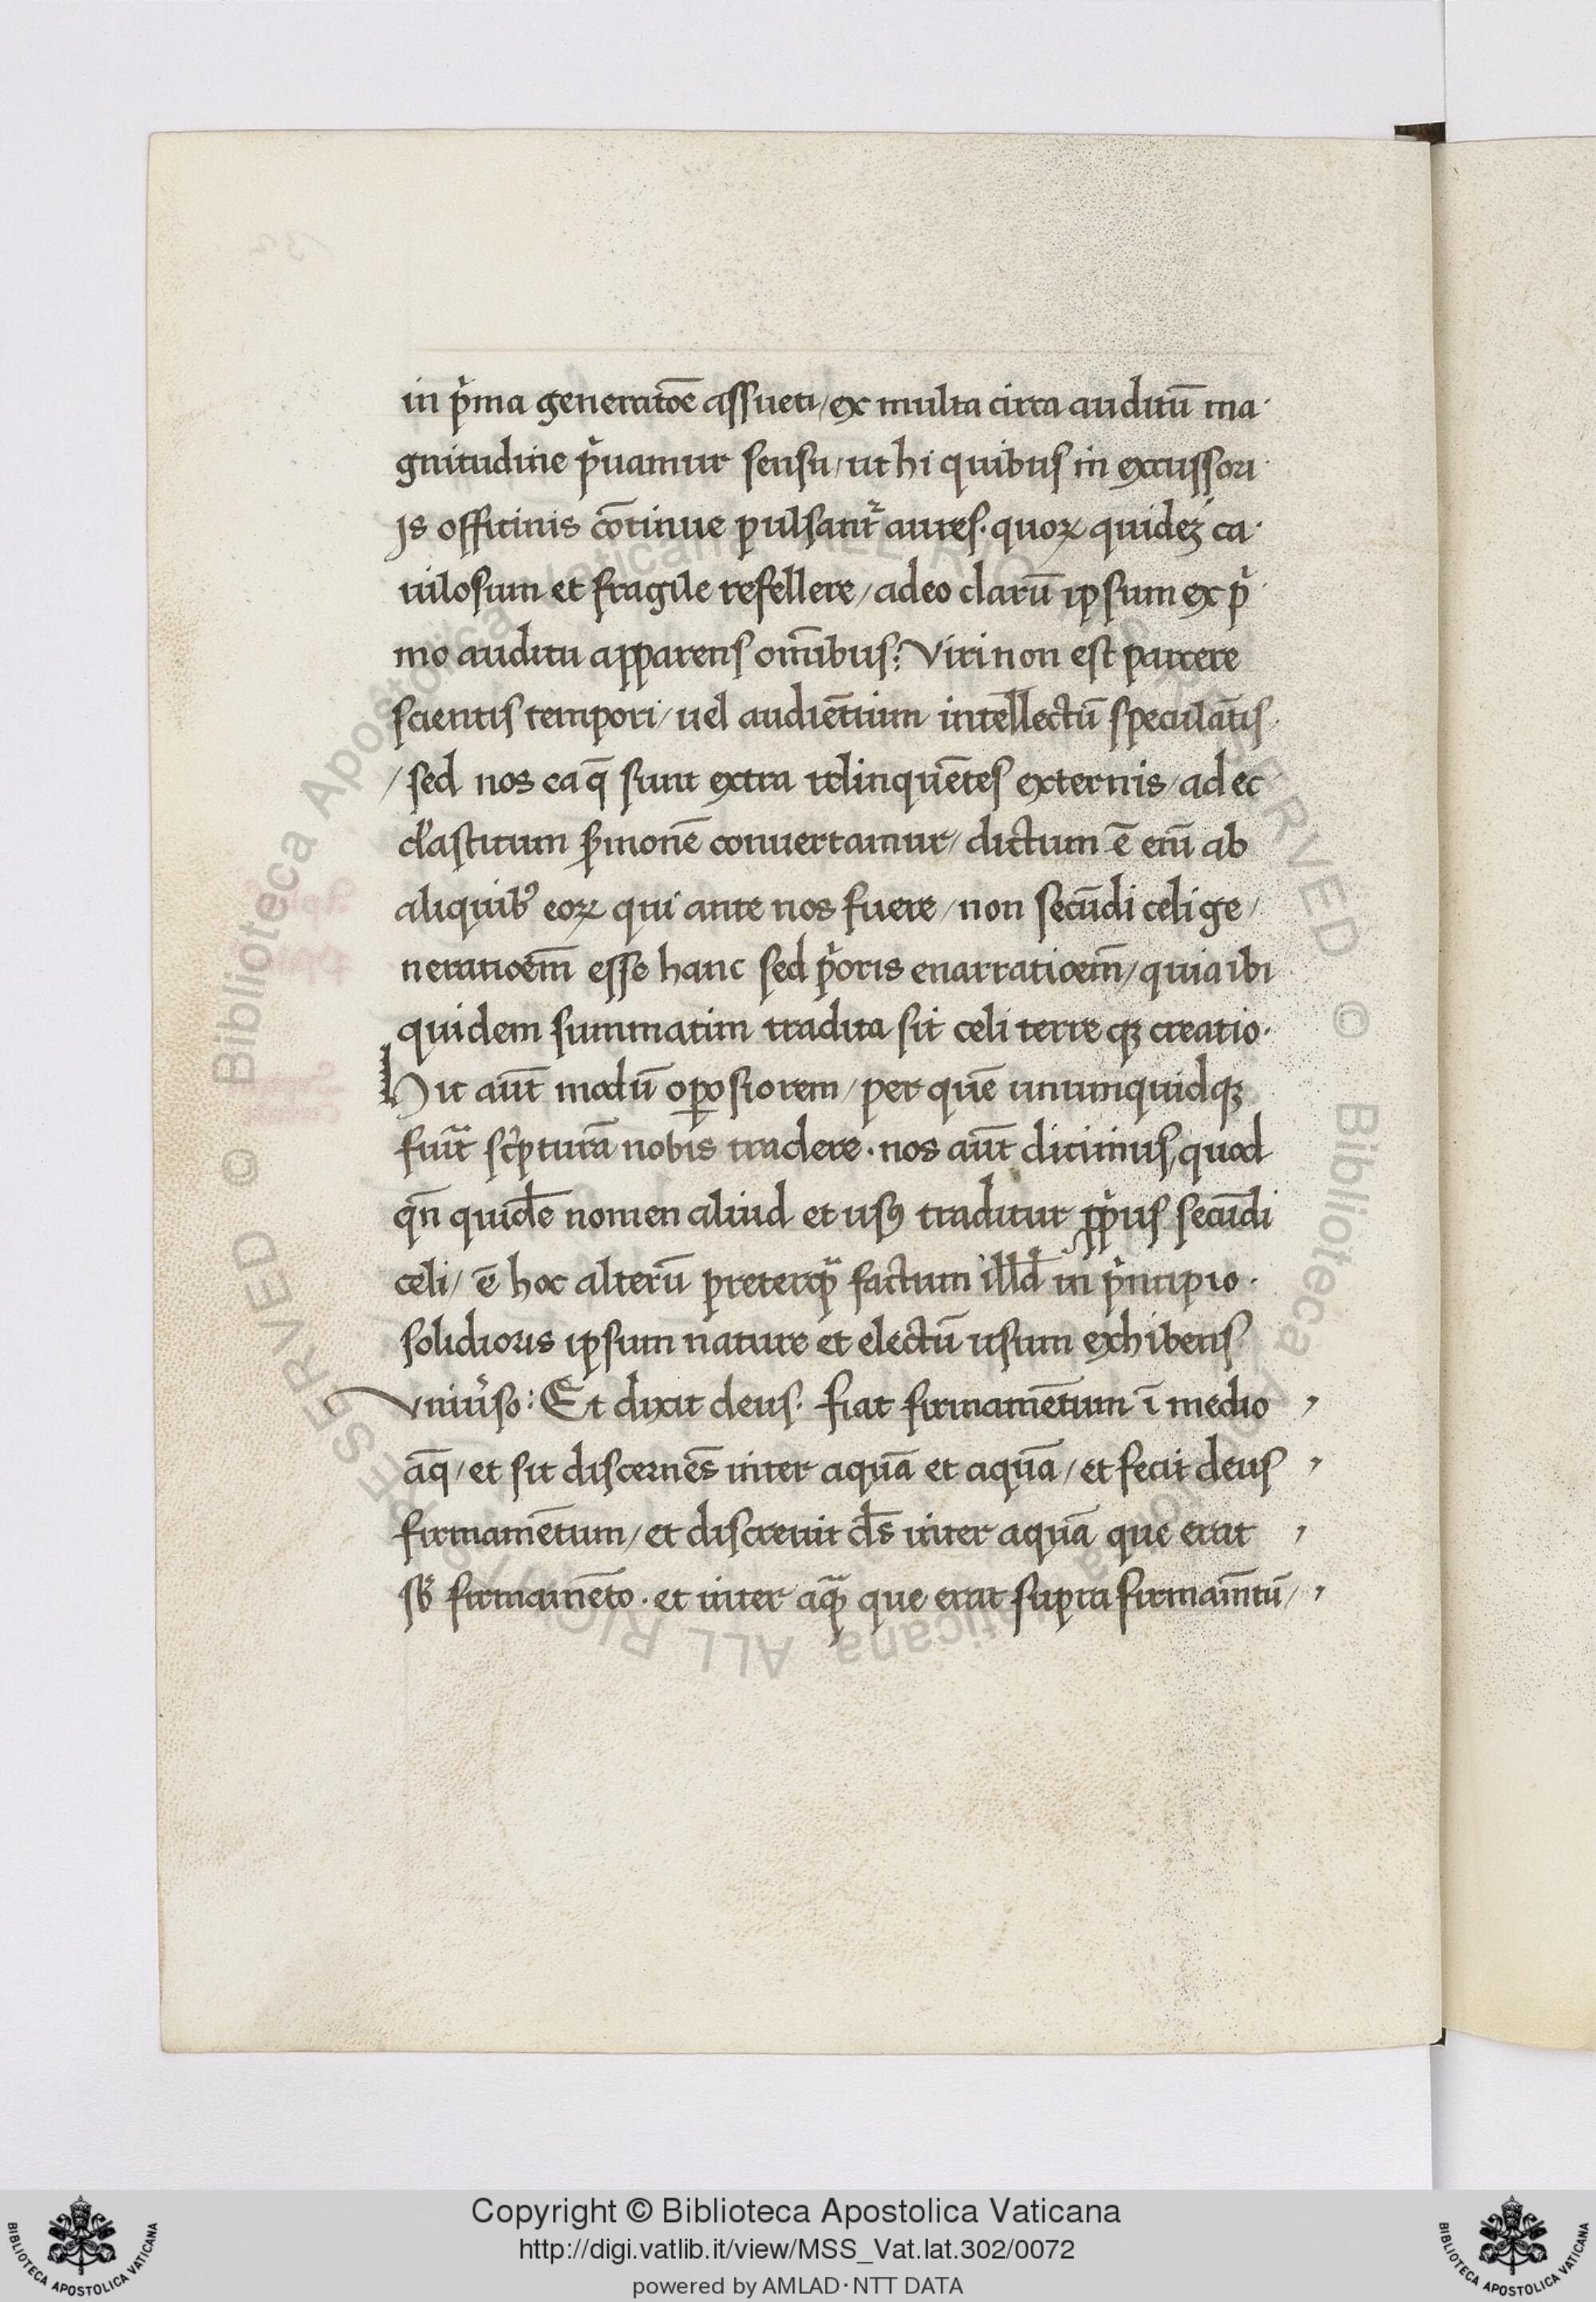 in p̓ma generatōe assueti / ex multa circa auditū ma·
gnitudine p̓uamur sensu / ut hi quibus in excussori·
js officinis cōtinue pulsant᷑ aures · quoꝝ quideʒ ca·
uilosum et fragile refellere / adeo clarū ipsum ex p̓·
mo auditu apparens om̄ibus? Viri non est parcere
scientis tempori / uel audiētium intellectū speculātis ·
/ sed nos ea q̄ sunt extra relinquētes externis / ad ec·
cl̓asticum s̓monē conuertamur / dictum ē eni̅ ab
aliquibꝰ eoꝝ qui ante nos fuere / non secūdi celi ge /
neratioēm esse hanc sed p̓oris enarratioēm / quia ibi
quidem summatim tradita sit celi terreqʒ creatio ·
Hic aūt modū oꝑosiorem / per quē unumquidqʒ
fuit᷑ sc̓pturā nobis tradere · nos aūt dicimus, quod
qn̄ quidē nomen aliud et usꝰ traditur ꝓp̓us secūdi
celi / ē hoc alterū preterqᷓ factum illd̄ in p̓ncipio ·
solidioris ipsum nature et electū usum exhibens
Vniu̓so : Et dixit deus · fiat firmamētum ī medio ,
aq̄ / et sit discernēs inter aquā et aquā / et fecit deus ,
firmamētum / et discreuit d̄s inter aquā que erat ,
sb̓ firmamēto · et inter aqᷓ que erat supra firmam̄tū / ,
Copyright © Biblioteca Apostolica Vaticana
http://digi.vatlib.it/view/MSS_Vat.lat.302/0072
powered by AMLAD·NTT DATA
BIBLIOTECA APOSTOLICA VATICANA
BIBLIOTECA APOSTOLICA VATICANA